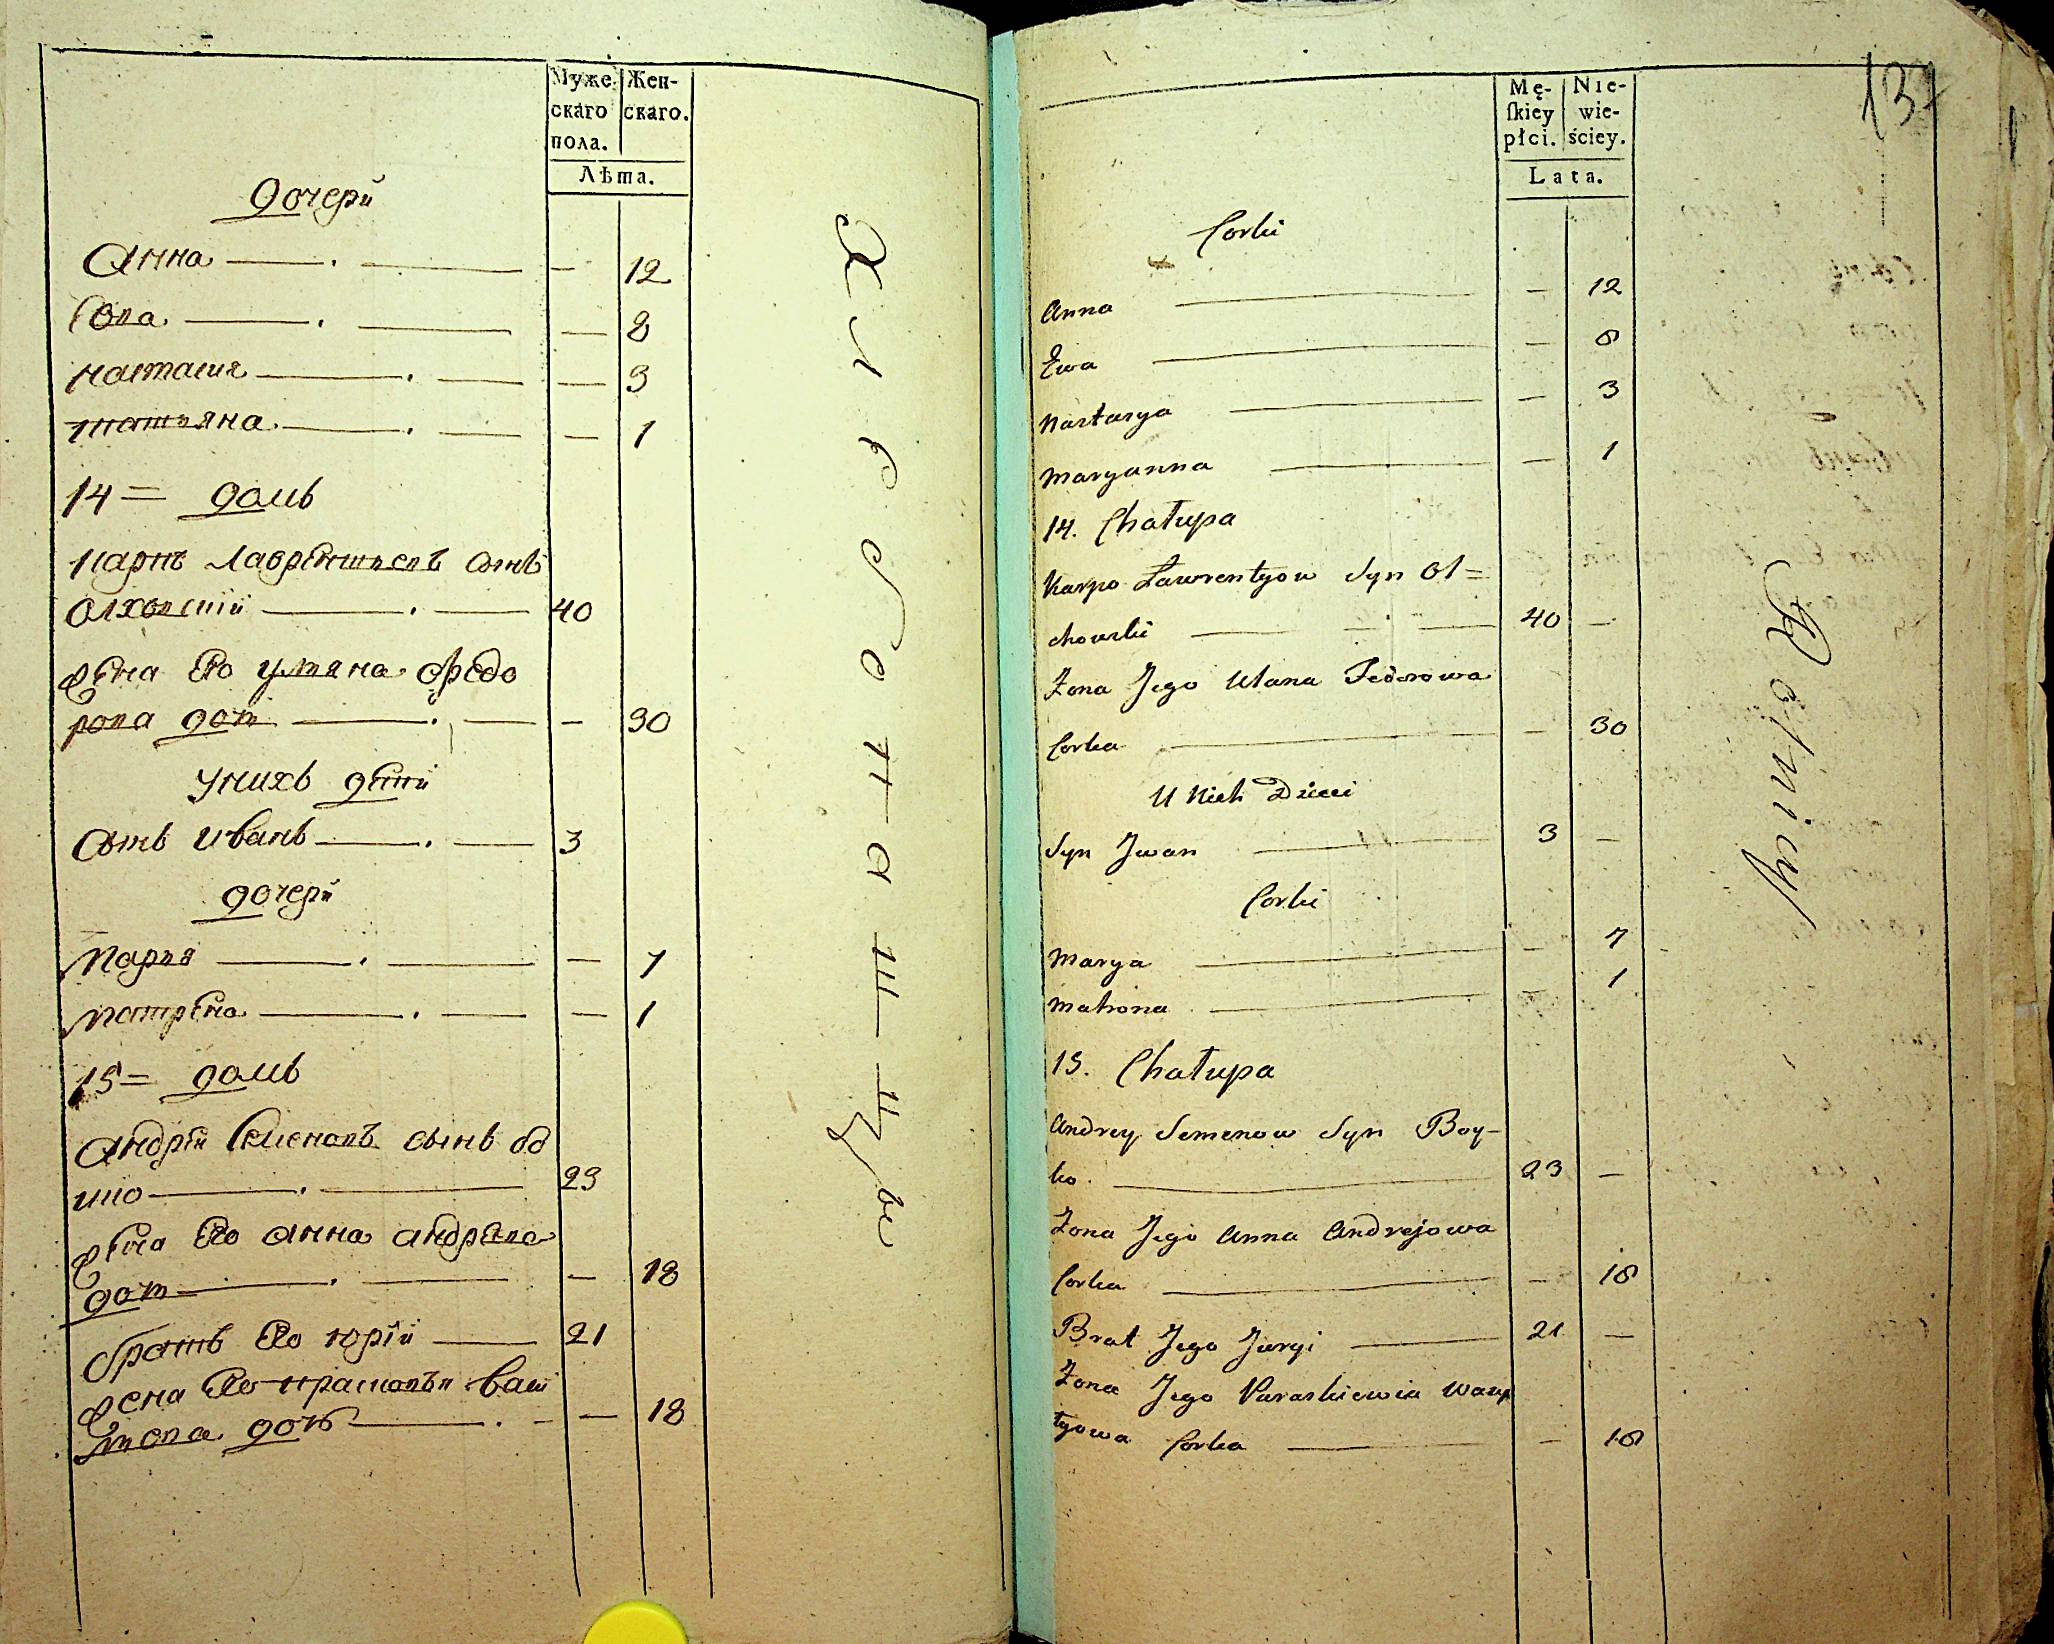 Муже
скаго
пола.
Жен-
скаго.
Лѣта.
дочери
Анна — 12
Ева — 8
настасия — 3
татьяна — 1
14 = домъ
Карпъ Лаврентьевъ сынъ
Олховский 40
жена Его Уляна Федо
рова доч — 30
у нихъ дети
сынъ иванъ 3
дочери
Мария — 7
Матрена — 1
15 = домъ
Андрей Семеновъ сынъ бо
йко 23
жена Его анна андреева
доч — 18
братъ Его юрий 21
жена Его парасковья вас
тьева дочь — 18
Хлебопашцы
137
Mę-
skiey
płci.
Nie-
wie-
ściey.
Lata.
Corki
Anna — 12
Ewa — 8
Nastasya — 3
Maryanna — 1
14. Chałupa
Karpo Ławrentyow Syn Ol=
chowski 40 —
Zona Jego Ulana Fedorowa
Corka — 30
U Nich Dzieci
Syn Jwan 3 —
Corki
Marya — 7
Matrona — 1
15. Chałupa
Andrey Semenow Syn Boy-
ko. 23 —
Zona Jego Anna Andrejowa
Corka — 18
Brat Jego Jurgi 21 —
Zona Jego Paraskiewia
tyowa Corka — 18
Rolnicy